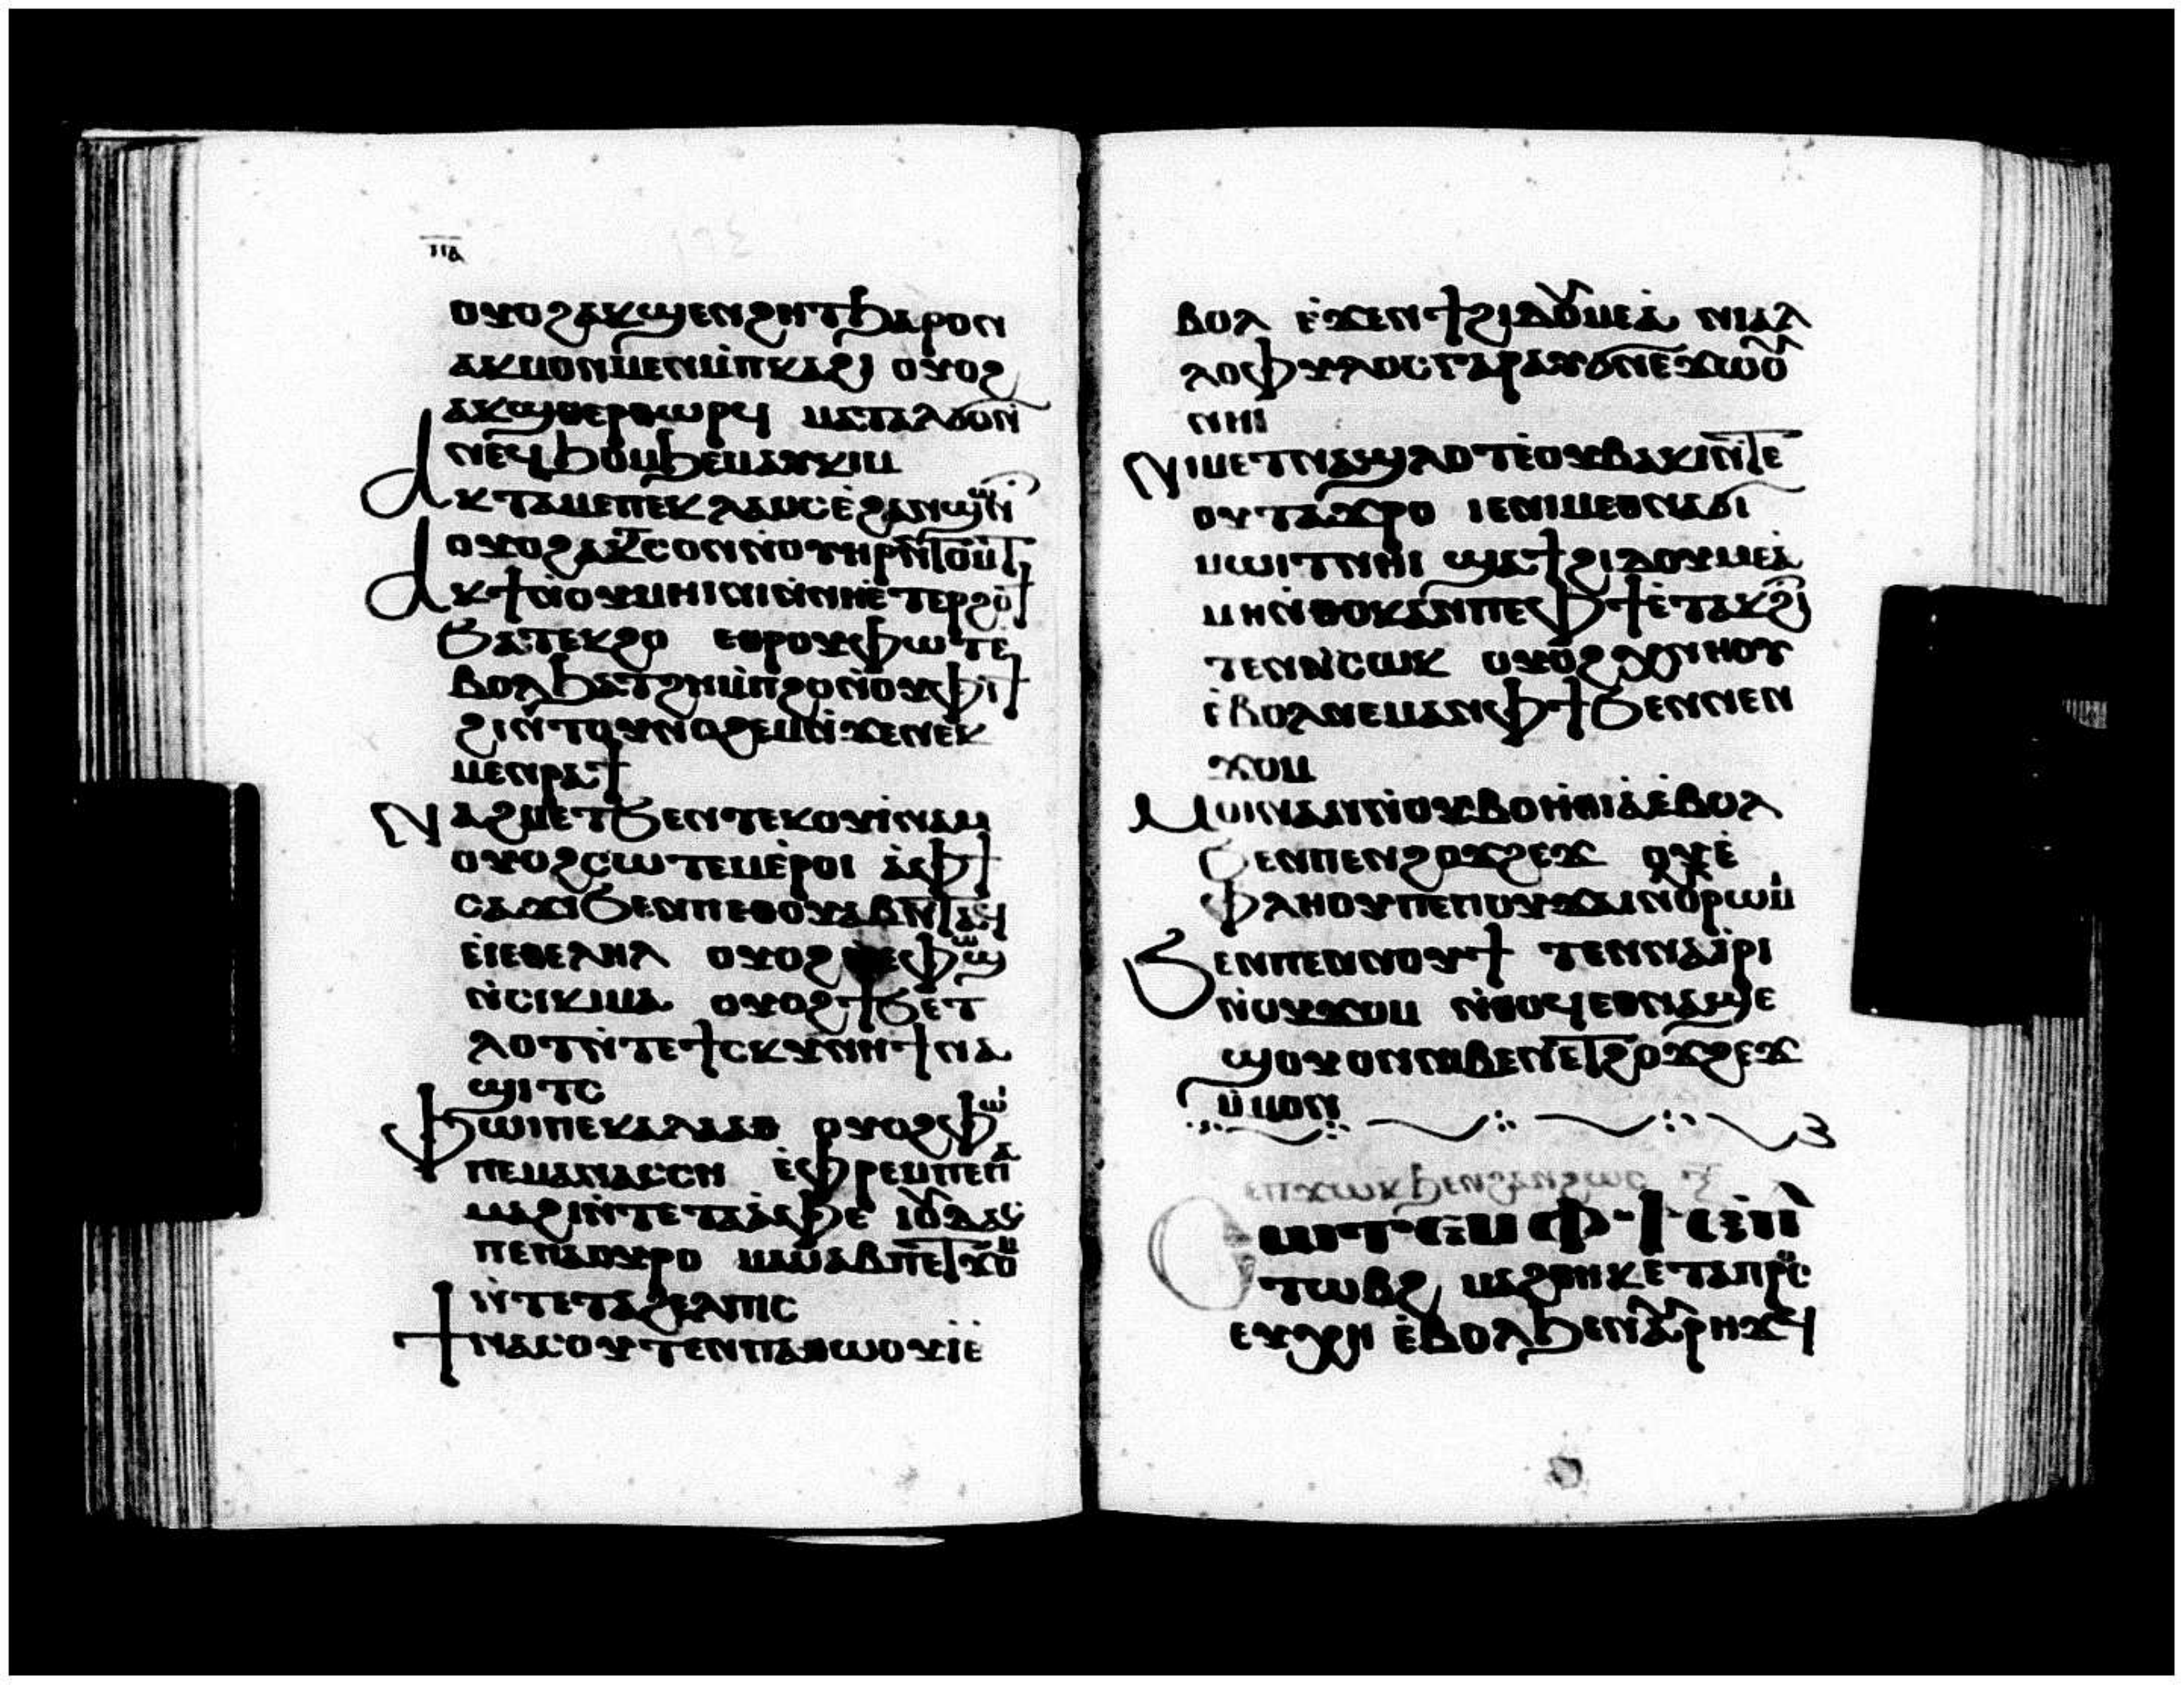 ⲡⲁ
ⲟⲩⲟϩⲁⲕϣⲉⲛϩⲏⲧϧⲁⲣⲟⲛ
ⲁⲕⲙⲟⲛⲙⲉⲛⲙ̀ⲡⲕⲁϩⲓ ⲟⲩⲟϩ
ⲁⲕϣⲑⲉⲣⲑⲱⲣϥ ⲙⲁⲧⲁⲗϭⲟⲛ̀
ⲛⲉϥϧⲟⲙϧⲉⲙⲁⲩⲕⲓⲙ
ⲁⲕⲧⲁⲙⲉⲡⲉⲕⲗⲁⲟⲥⲉ̀ϩⲁⲛⲱ̅ϣⲛ̀
ⲟⲩⲟϩⲁⲕⲧⲥⲟⲛⲛ̀ⲟⲩⲏⲣⲡⲛ̅ⲧⲟⲙ̀ⲧ
ⲁⲕϯⲛ̀ⲟⲩⲙⲏⲓⲛⲓⲛ̀ⲛⲏⲉ̀ⲧⲉⲣϩⲟϯ
ϧⲁⲧⲉⲕϩⲏ ⲉⲑⲣⲟⲩⲫⲱⲧⲉ̀
ⲃⲟⲗϧⲁⲧϩⲏⲙ̀ⲡϩⲟⲛ̀ⲟⲩⲫⲓϯ
ϩⲓⲛ̀ⲧⲟⲩⲛⲟϩⲉⲙⲛ̀ϫⲉⲛⲉⲕ
ⲙⲉⲛⲣⲁϯ
ⲛⲁϩⲙⲉⲧϧⲉⲛⲧⲉⲕⲟⲩⲓ̀ⲛⲁⲙ
ⲟⲩⲟϩⲥⲱⲧⲉⲙⲉ̀ⲣⲟⲓ ⲁ̀ⲫϯ
ⲥⲁϫⲓϧⲉⲛⲡⲉⲑⲟⲩⲁⲃⲛ̅ⲧⲁϥ
ⲉⲓⲉⲑⲉⲗⲏⲗ ⲟⲩⲟϩ ⲉⲓⲉⲫⲱϣ
ⲛ̀ⲥⲓⲕⲓⲙⲁ ⲟⲩⲟϩϯϧⲉ̀ⲧ
ⲗⲟⲧⲛ̀ⲧⲉϯⲥⲕⲩⲛⲏϯⲛⲁ
ϣⲓⲧⲥ
ⲫⲱⲓⲡⲉⲕⲁⲗⲁⲁⲇ ⲟⲩⲟϩⲫⲱⲓ̀
ⲡⲉⲙⲁⲛⲁⲥⲥⲏ ⲉ̀ⲫⲣⲉⲙⲡⲉⲡⲁ̀
ⲙⲁϩⲓⲛ̀ⲧⲉⲧⲁⲁ̀ⲫⲉ ⲓⲟⲩⲇⲁⲥ
ⲡⲉⲡⲁⲟⲩⲣⲟ ⲙⲱⲁⲃⲡⲉⲧϫⲟⲙ
ⲛ̀ⲧⲉⲧⲁϩⲉⲗⲡⲓⲥ
ϯⲛⲁⲥⲟⲩⲧⲉⲛⲡⲁⲑⲱⲟⲩⲓ̀ⲉ̀
ⲃⲟⲗ ⲉ̀ϫⲉⲛϯϩⲓⲇⲟⲩⲙⲉⲁ̀ ⲛⲓⲁⲗ
ⲗⲟⲫⲩⲗⲟⲥⲅⲁⲣⲁⲩϭⲛⲉϫⲱⲟⲩ
ⲛⲏⲓ
ⲛⲓⲙⲉⲧⲛⲁϣⲗⲟⲧⲉ̀ⲟⲩⲃⲁⲕⲓⲛ̅ⲧⲉ
ⲟⲩⲧⲁϫⲣⲟ ⲓⲉⲛⲓⲙⲉⲑⲛⲁϭⲓ
ⲙⲱⲓⲧⲛⲏⲓ ϣⲁϯϩⲓⲇⲟⲩⲙⲉⲁ̀
ⲙⲏⲛ̀ⲑⲟⲕⲁⲛⲡⲉⲫϯⲉ̀ⲧⲁⲕϩⲓ
ⲧⲉⲛⲛ̀ⲥⲱⲕ ⲟⲩⲟϩⲭⲛⲏⲟⲩ
ⲉ̀ⲃⲟⲗⲛⲉⲙⲁⲛⲫϯϧⲉⲛⲛⲉⲛ
ϫⲟⲙ
ⲙⲟⲓⲛⲁⲛⲛ̀ⲟⲩⲃⲟⲏ̀ⲑⲓⲁⲉ̀ⲃⲟⲗ
ϧⲉⲛⲡⲉⲛϩⲟϫϩⲉϫ ⲟⲩⲉ̀
ⲫⲗⲏⲟⲩⲡⲉⲡⲟⲩϫⲁⲓⲛ̀ⲟⲣⲱⲙ̀
ϧⲉⲛⲡⲉⲛⲛⲟⲩϯ ⲧⲉⲛⲛⲁⲓ̀ⲣⲓ
ⲛ̀ⲟⲩϫⲟⲙ ⲛ̀ⲑⲟϥⲉⲑⲛⲁϣⲉ
ϣⲟⲩⲟⲛⲛⲓⲃⲉⲛⲉⲧϩⲟϫϩⲉϫ
ⲙ̀ⲙⲟⲛ
ⲉⲡϫⲱⲕϧⲉⲛϩⲁⲛϩⲱⲥ ⲝ̅
ⲥⲱⲧⲉⲙⲫϯⲉⲡⲁ
ⲧⲱⲃϩ ⲙⲁϩⲑⲏⲕⲉ̀ⲧⲁⲡⲣⲟⲥ
ⲉⲩⲭⲏ ⲉ̀ⲃⲟⲗϧⲉⲛⲁⲩⲣⲏϫϥ